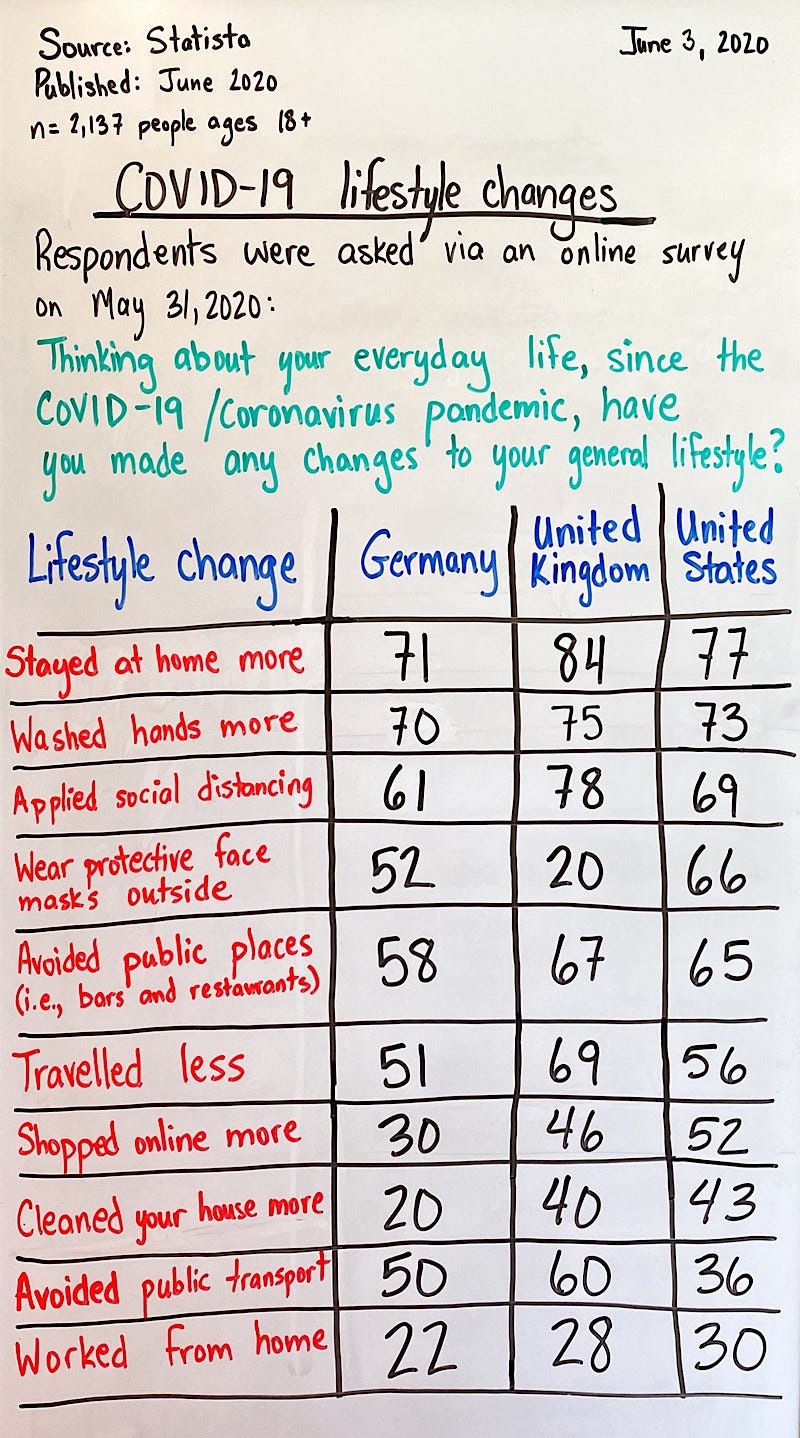 Source: Statista
June 3, 2020
Published: June 2020
n= 2,137 people ages 18+
COVID-19 lifestyle changes
Respondents were asked via an online survey
on May 31, 2020:
Thinking about your everyday life, since the
COVID-19 /Coronavirus pandemic, have
you made any changes to your general lifestyle?
Lifestyle change Germany United Kingdom United States
Stayed at home more 71 84 77
Washed hands more 70 75 73
Applied social distancing 61 78 69
Wear protective face
masks outside 52 20 66
Avoided public places
(i.e., bars and restaurants) 58 67 65
Travelled less 51 69 56
Shopped online more 30 46 52
Cleaned your house more 20 40 43
Avoided public transport 50 60 36
Worked from home 22 28 30